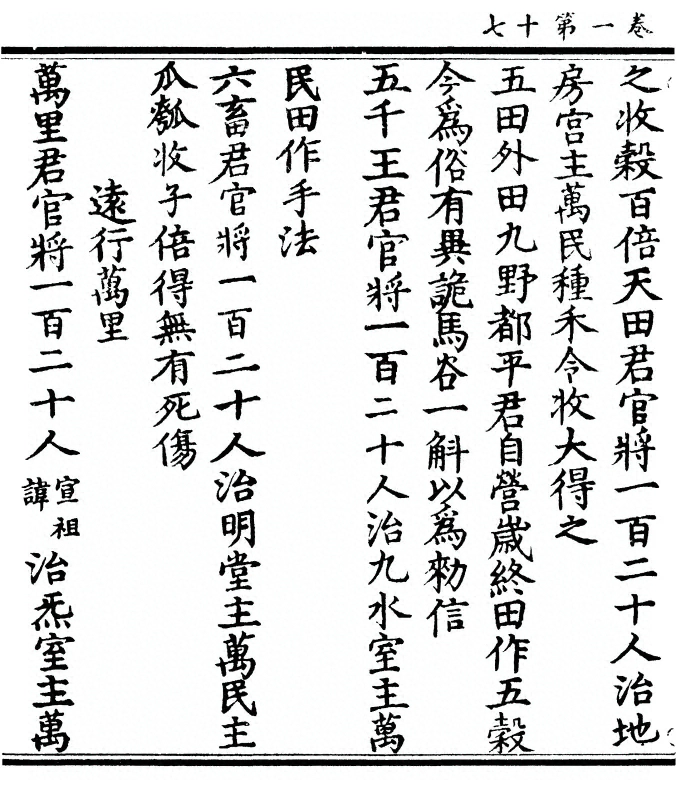 卷一第十七
之收糓百倍天田君官將一百二十人治地
房宫主萬民種禾令收大得之
五田外田九野都平君自營嵗終田作五糓
今爲俗有異詭馬谷一斛以爲勑信
五千王君官將一百二十人治九水室主萬
民田作手法
六畜君官將一百二十人治明堂主萬民主
瓜瓠收子倍得無有死傷
遠行萬里
萬里君官將一百二十人宣祖諱治炁室主萬